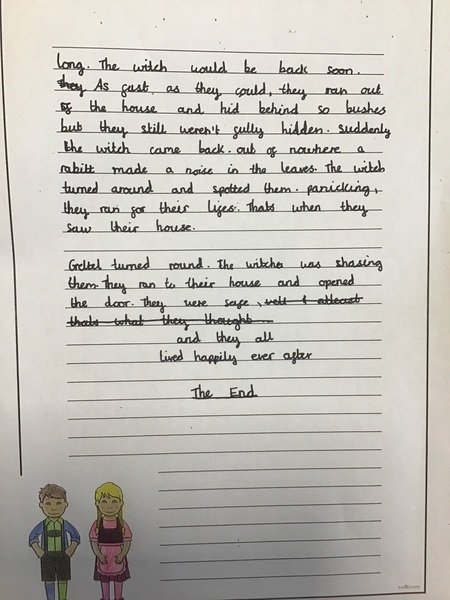 long. The witch would be back soon.
They As fast as they could, they ran out
of the house and hid behind so bushes
but they still weren't fully hidden. Suddenly
the witch came back. out of nowhere a
rabitt made a noise in the leaves. The witch
turned around and spotted them. panicking,
they ran for their lifes. Thats when they
saw their house.
Greltel turned round. The witches was shasing
them. They ran to their house and opened
the door. They were safe, well & atleast
thats what they thought...
and they all
lived happily ever after
The End